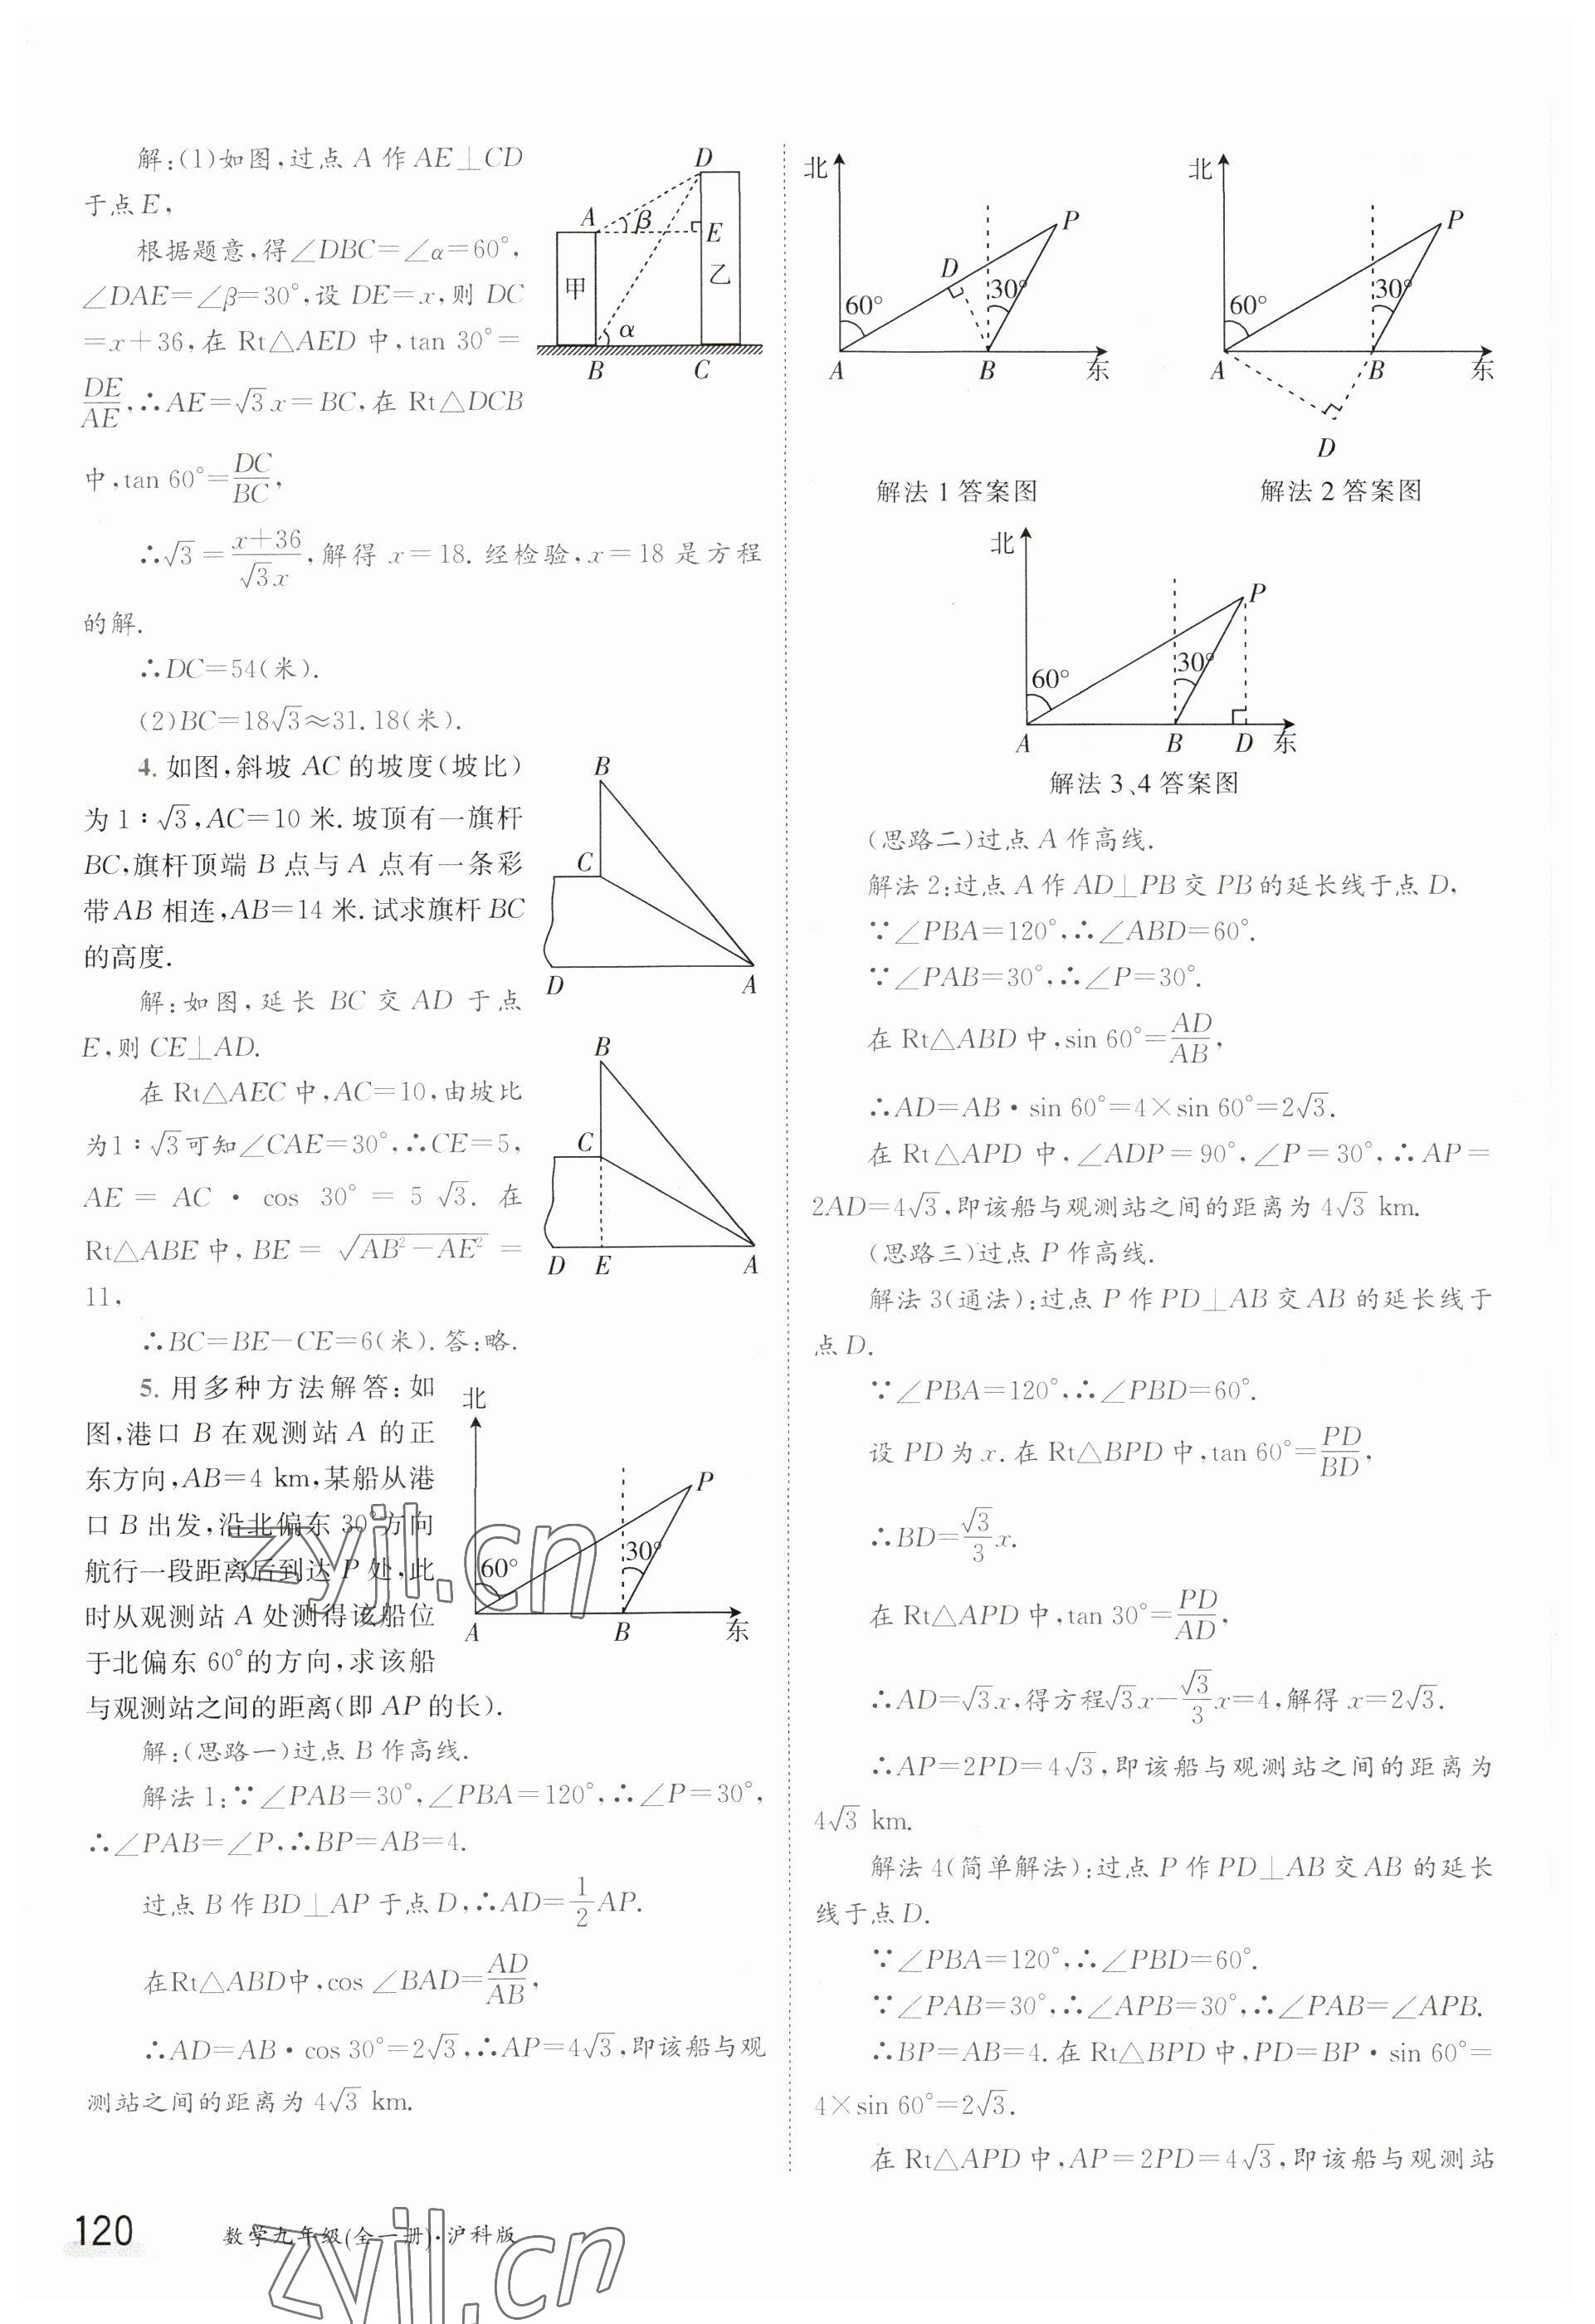 解:(1)如图,过点 A 作 AE⊥CD
于点E,
根据题意,得∠DBC=∠α=60°,
∠DAE=∠β=30°,设 DE=x,则 DC
=x+36,在 Rt△AED 中,tan 30°=
DE/AE,∴AE=√3x=BC,在 Rt△DCB
中,tan 60°=DC/BC,
∴√3=(x+36)/(√3x),解得 x=18. 经检验,x=18 是方程
的解.
∴DC=54(米).
(2)BC=18√3≈31.18(米).
D
A
β
E
甲
乙
α
B
C
4. 如图,斜坡 AC 的坡度(坡比)
为1∶√3,AC=10 米. 坡顶有一旗杆
BC,旗杆顶端 B 点与 A 点有一条彩
带AB 相连,AB=14 米. 试求旗杆 BC
的高度.
B
C
D
A
解:如图,延长 BC 交 AD 于点
E,则 CE⊥AD.
在 Rt△AEC 中,AC=10,由坡比
为1∶√3可知∠CAE=30°,∴CE=5,
AE = AC · cos 30° = 5 √3. 在
Rt△ABE 中, BE = √(AB²−AE²) =
11,
∴BC=BE−CE=6(米). 答:略.
B
C
D
E
A
5. 用多种方法解答:如
图,港口 B 在观测站 A 的正
东方向,AB=4 km,某船从港
口 B 出发,沿北偏东 30°方向
航行一段距离后到达 P 处,此
时从观测站 A 处测得该船位
于北偏东 60°的方向,求该船
与观测站之间的距离(即 AP 的长).
北
P
60°
30°
A
B
东
解:(思路一)过点 B 作高线.
解法 1:∵∠PAB=30°,∠PBA=120°,∴∠P=30°,
∴∠PAB=∠P,∴BP=AB=4.
过点 B 作 BD⊥AP 于点 D,∴AD=1/2AP.
在Rt△ABD中,cos ∠BAD=AD/AB,
∴AD=AB·cos 30°=2√3,∴AP=4√3,即该船与观
测站之间的距离为 4√3 km.
北
P
D
60°
30°
A
B
东
解法 1 答案图
北
P
60°
30°
A
B
东
D
解法 2 答案图
北
P
60°
30°
A
B
D
东
解法 3、4 答案图
(思路二)过点 A 作高线.
解法 2:过点 A 作 AD⊥PB 交 PB 的延长线于点 D,
∵∠PBA=120°,∴∠ABD=60°.
∵∠PAB=30°,∴∠P=30°.
在 Rt△ABD 中,sin 60°=AD/AB,
∴AD=AB·sin 60°=4×sin 60°=2√3.
在 Rt△APD 中,∠ADP=90°,∠P=30°,∴AP=
2AD=4√3,即该船与观测站之间的距离为 4√3 km.
(思路三)过点 P 作高线.
解法 3(通法):过点 P 作 PD⊥AB 交 AB 的延长线于
点 D.
∵∠PBA=120°,∴∠PBD=60°.
设 PD 为 x. 在 Rt△BPD 中,tan 60°=PD/BD,
∴BD=√3/3x.
在 Rt△APD 中,tan 30°=PD/AD,
∴AD=√3x,得方程√3x−√3/3x=4,解得 x=2√3.
∴AP=2PD=4√3,即该船与观测站之间的距离为
4√3 km.
解法 4(简单解法):过点 P 作 PD⊥AB 交 AB 的延长
线于点 D.
∵∠PBA=120°,∴∠PBD=60°.
∵∠PAB=30°,∴∠APB=30°,∴∠PAB=∠APB.
∴BP=AB=4. 在 Rt△BPD 中,PD=BP·sin 60°=
4×sin 60°=2√3.
在 Rt△APD 中,AP=2PD=4√3,即该船与观测站
zyjl.cn
120
数学九年级(全一册)·沪科版
zyjl.cn